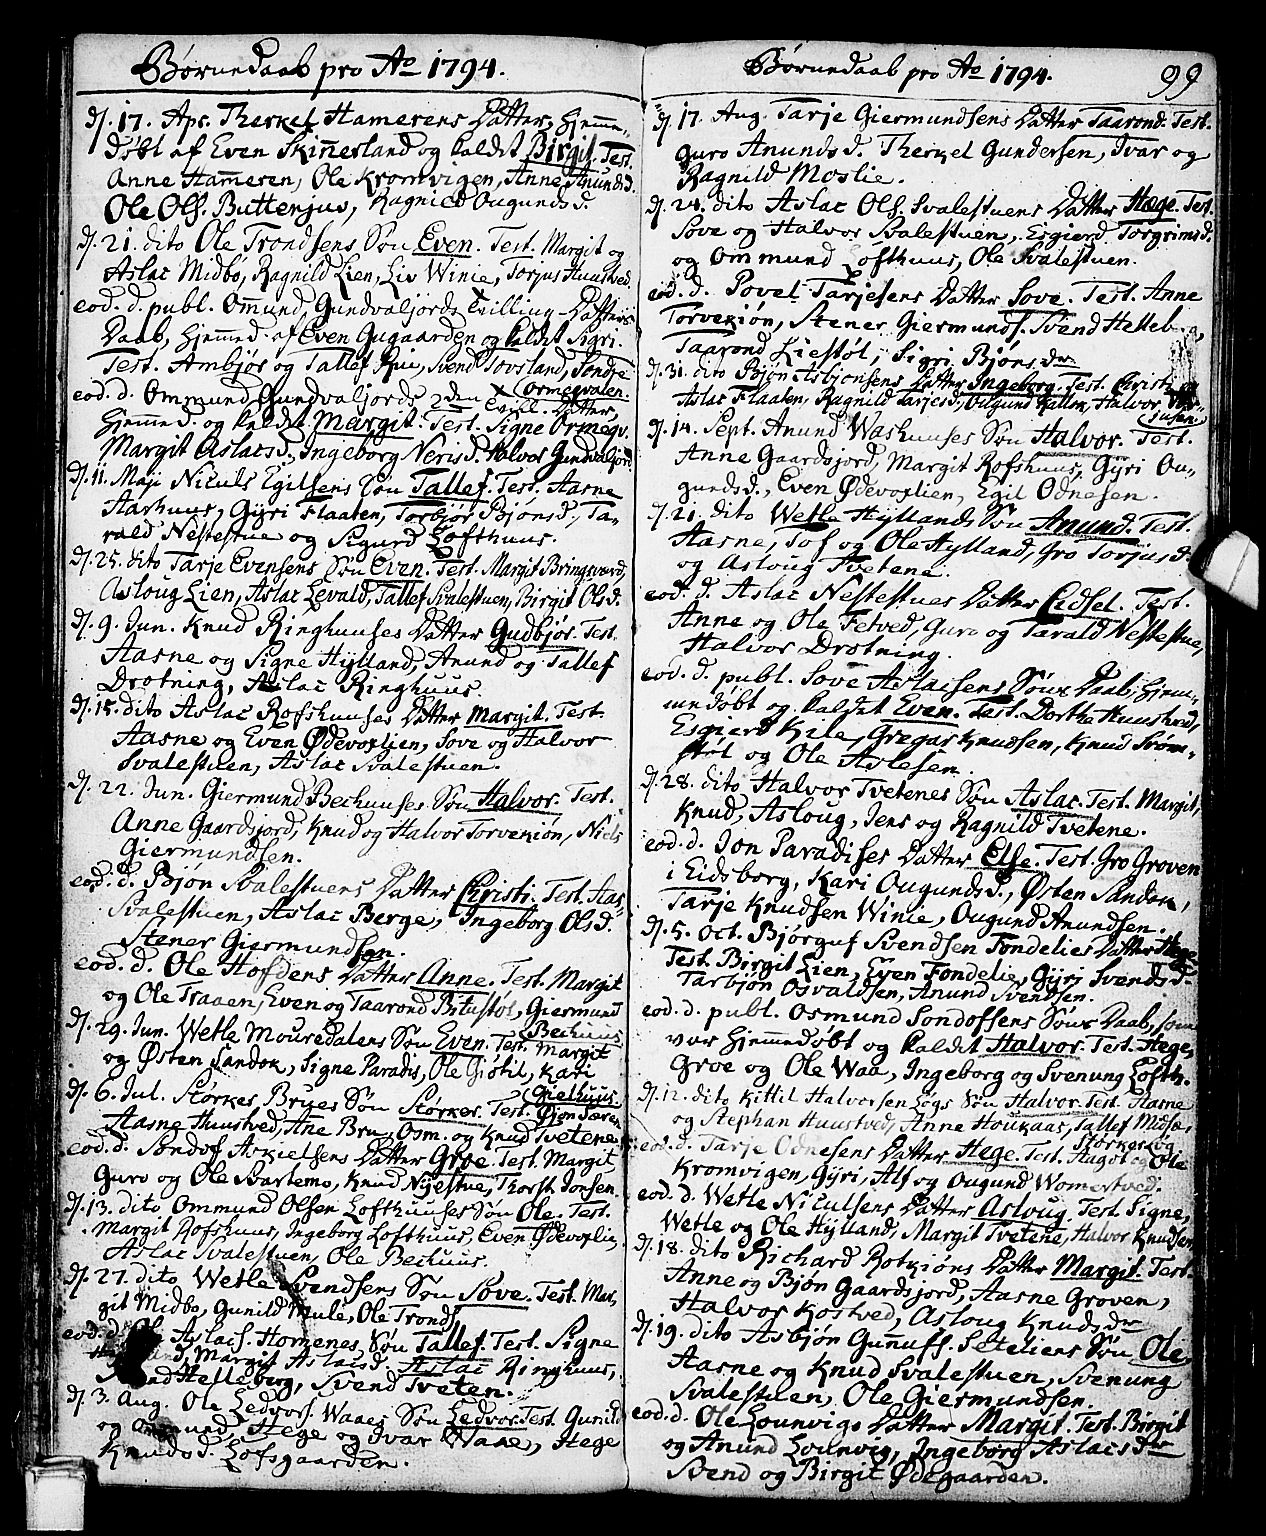 Børnedaab pro Ao 1794.
d. 17. Apr. Therkel Hamerens Datter, hjemme-
døbt af Even Skinnerland og kaldet Birgit. Test.
Anne Hameren, Ole Kromvigen, Anne Anundsd.
Ole Ols. Buttenjus, Ragnild Ougundsd.
d. 21. dito Ole Trondsens Søn Even. Test. Margit og
Aslac Midbø, Ragnild Lien, Liv Winie, Torjus Huustved.
eod. d. publ. Omund Gundvaljords Tvilling-Datters
Daab, hjemmed. af Even Gugaarden og kaldet Sigri.
Test. Ambjør og Tallef Rui, Svend Tovsland, Sondre
Ormegvalen.
eod. d. Ommund Gundvaljords 2den Tvill. Datter,
hjemmed. og kaldet Margit. Test. Signe Ormegv.
Margit Aslacsd. Ingeborg Nerisd. Halvor Gundvaljord.
d. 11. Maji Niculs Egilsens Søn Tallef. Test. Aasne
Aashuus, Gyri Flaaten, Torbjør Bjønsd., Ta-
rald Nestestue og Sigurd Lofthuus.
d. 25. dito Tarje Evensens Søn Even. Test. Margit Bringsværd,
Asloug Lien, Aslac Levald, Tallef Svalestuen, Birgit Olsd.
d. 9. Jun. Knud Ringhuuses Datter Gudbjør. Test.
Aasne og Signe Hylland, Anund og Tallef
Drotning, Aslac Ringhuus.
d. 15. dito Aslac Rofshuuses Datter Margit. Test.
Aasne og Even Ødevoxlien, Sove og Halvor
Svalestuen, Aslac Svalestuen.
d. 22. Jun. Giermund Bechuuses Søn Halvor. Test.
Anne Gaardsjord, Knud og Halvor Torvekiøn, Niels
Giermundsen.
eod. d. Bjøn Svalestuens Datter Christi. Test. Aas-
Svalestuen, Aslac Berge, Ingeborg Olsd.
Stener Giermundsen.
eod. d. Ole Hofdens Datter Anne. Test. Margit
og Ole Traaen, Even og Taarond Bitustøl, Giermund
Bechuus
d. 29. Jun. Wetle Mouredalens Søn Even. Test. Margit
og Østen Sandok, Signe Paradis, Ole Giøtil, Kari
Gielhuus.
d. 6. Jul. Størkes Brues Søn Størker. Test. Øjon Særen
Aasne Huustved, Ane Bru, Osm. og Knud Tvetene
eod. d. Sondof Hokielsens Datter Groe. Test. Margit
Guro og Ole Bartemo, Knud Nyestue, Thorst. Jonsen.
d. 13. dito Ommund Olsen Lofthuuses Søn Ole. Test.
Margit Rofshuus, Ingeborg Lofthuus, Even Ødevoxlie,
Aslac Svalestuen, Ole Bechuus.
d. 27. dito Wetle Svendsens Søn Sove. Test. Mar-
git Midbø, Gunild Mule, Ole Trond,
eod. d. Aslacs. Homenes Søn Tallef. Test. Signe
Margit Aslacsd. Aslac Ringhuus,
Helleberg, Svend Tveten.
d. 3. Aug. Ole Ledvors. Waaes Søn Ledvor. Test. Gunild
og Ommund, Hege og Ivar Waae, Hege
Knudsd. Lofsgaarden.
Børnedaab pro Ao 1794. 99
d. 17. Aug. Tarje Giermundsens Datter Taarond. Test.
Guro Anundsd. Therkel Gundersen, Ivar og
Ragnild Moslie.
d. 24. dito Aslac Ols. Svalestuens Datter Hæge. Test.
Sove og Halvor Svalestuen, Esgierd Torgrimsd.
og Ommund Lofthuus, Ole Svalestuen.
eod. d. Povel Tarjesens Datter Sove. Test. Anne
Torvekiøn, Stener Giermunds. Svend Helleberg,
Taarond Liestøl, Sigri Bjønsdr
d. 31. dito Bjøn Asbjonsens Datter Ingeborg. Test. Christi og
Aslac Flaaten, Ragnild Tarjesd., Ougund Hallen, Halvor
d. 14. Sept. Anund Washuuses Søn Halvor. Test.
Anne Gaardsjord, Margit Rofshuus, Gyri Ou-
gundsd., Even Ødevoxlien, Egil Odnesen.
d. 21. dito Wetle Hyllands Søn Anund. Test.
Aasne, Tof og Ole Hylland, Gro Torjusd.
og Asloug Tvetene.
eod. d. Aslac Nestestues Datter Eidsel. Test.
Anne og Ole Fetved, Guro og Tarald Nestestue,
Halvor Drotning.
eod. d. publ. Sove Aslacsens Søns Daab, hjem-
medøbt og kaldet Even. Test. Dorthe Huustved,
Esgierd Kile, Gregar Knudsen, Knud Strøm-
støl og Ole Aslesen.
d. 28. dito Halvor Tvetenes Søn Aslac. Test. Margit,
Knud, Asloug, Jens og Ragnild Tvetene.
eod. d. Jon Paradises Datter Else. Test. Gro Groven
i Eidsborg, Kari Ougundsd., Østen Sandok,
Tarje Knudsen Winie, Ougund Anundsen.
d. 5. Oct. Bjørguf Svendsen Fondelies Datter Hege
Test. Birgit Lien, Even Fondelie, Gyri Svendsd.
Tarbjøn Osvaldsen, Anund Svendsen.
eod. d. publ. Osmund Sondofsens Søns Daab, som
var hjemmedøbt og kaldet Halvor. Test. Hege,
Groe og Ole Waa, Ingeborg og Svenung Lofth.
d. 12. dito Kittil Halvorsen Løgs Søn Halvor. Test. Aasne
og Stephan Huustved, Anne Houkaas, Tallef Midbø,
Størker og
eod. d. Tarje Odnesens Datter Hege. Test. Aagot og Ole
Kromvigen, Gyri, Alf og Ougund Womertved.
eod. d. Wetle Niculsens Datter Asloug. Test. Signe,
Wetle og Ole Hylland, Margit Tvetene, Halvor Knudsen
d. 18. dito Richard Rotkiøns Datter Margit. Test.
Anne og Bjøn Gaardsjord, Aasne Groven,
Halvor Kostved, Asloug Knudsdr
d. 19. dito Asbjøn Gunufs. Seteliens Søn Ole.
Aasne og Knud Svalestuen, Svenung
Svalestuen, Ole Giermundsen.
eod. d. Ole Lounvigs Datter Margit. Test. Birgit
og Anund Lounvig, Ingeborg Aslacsdr
Svend og Birgit Ødegaarden.